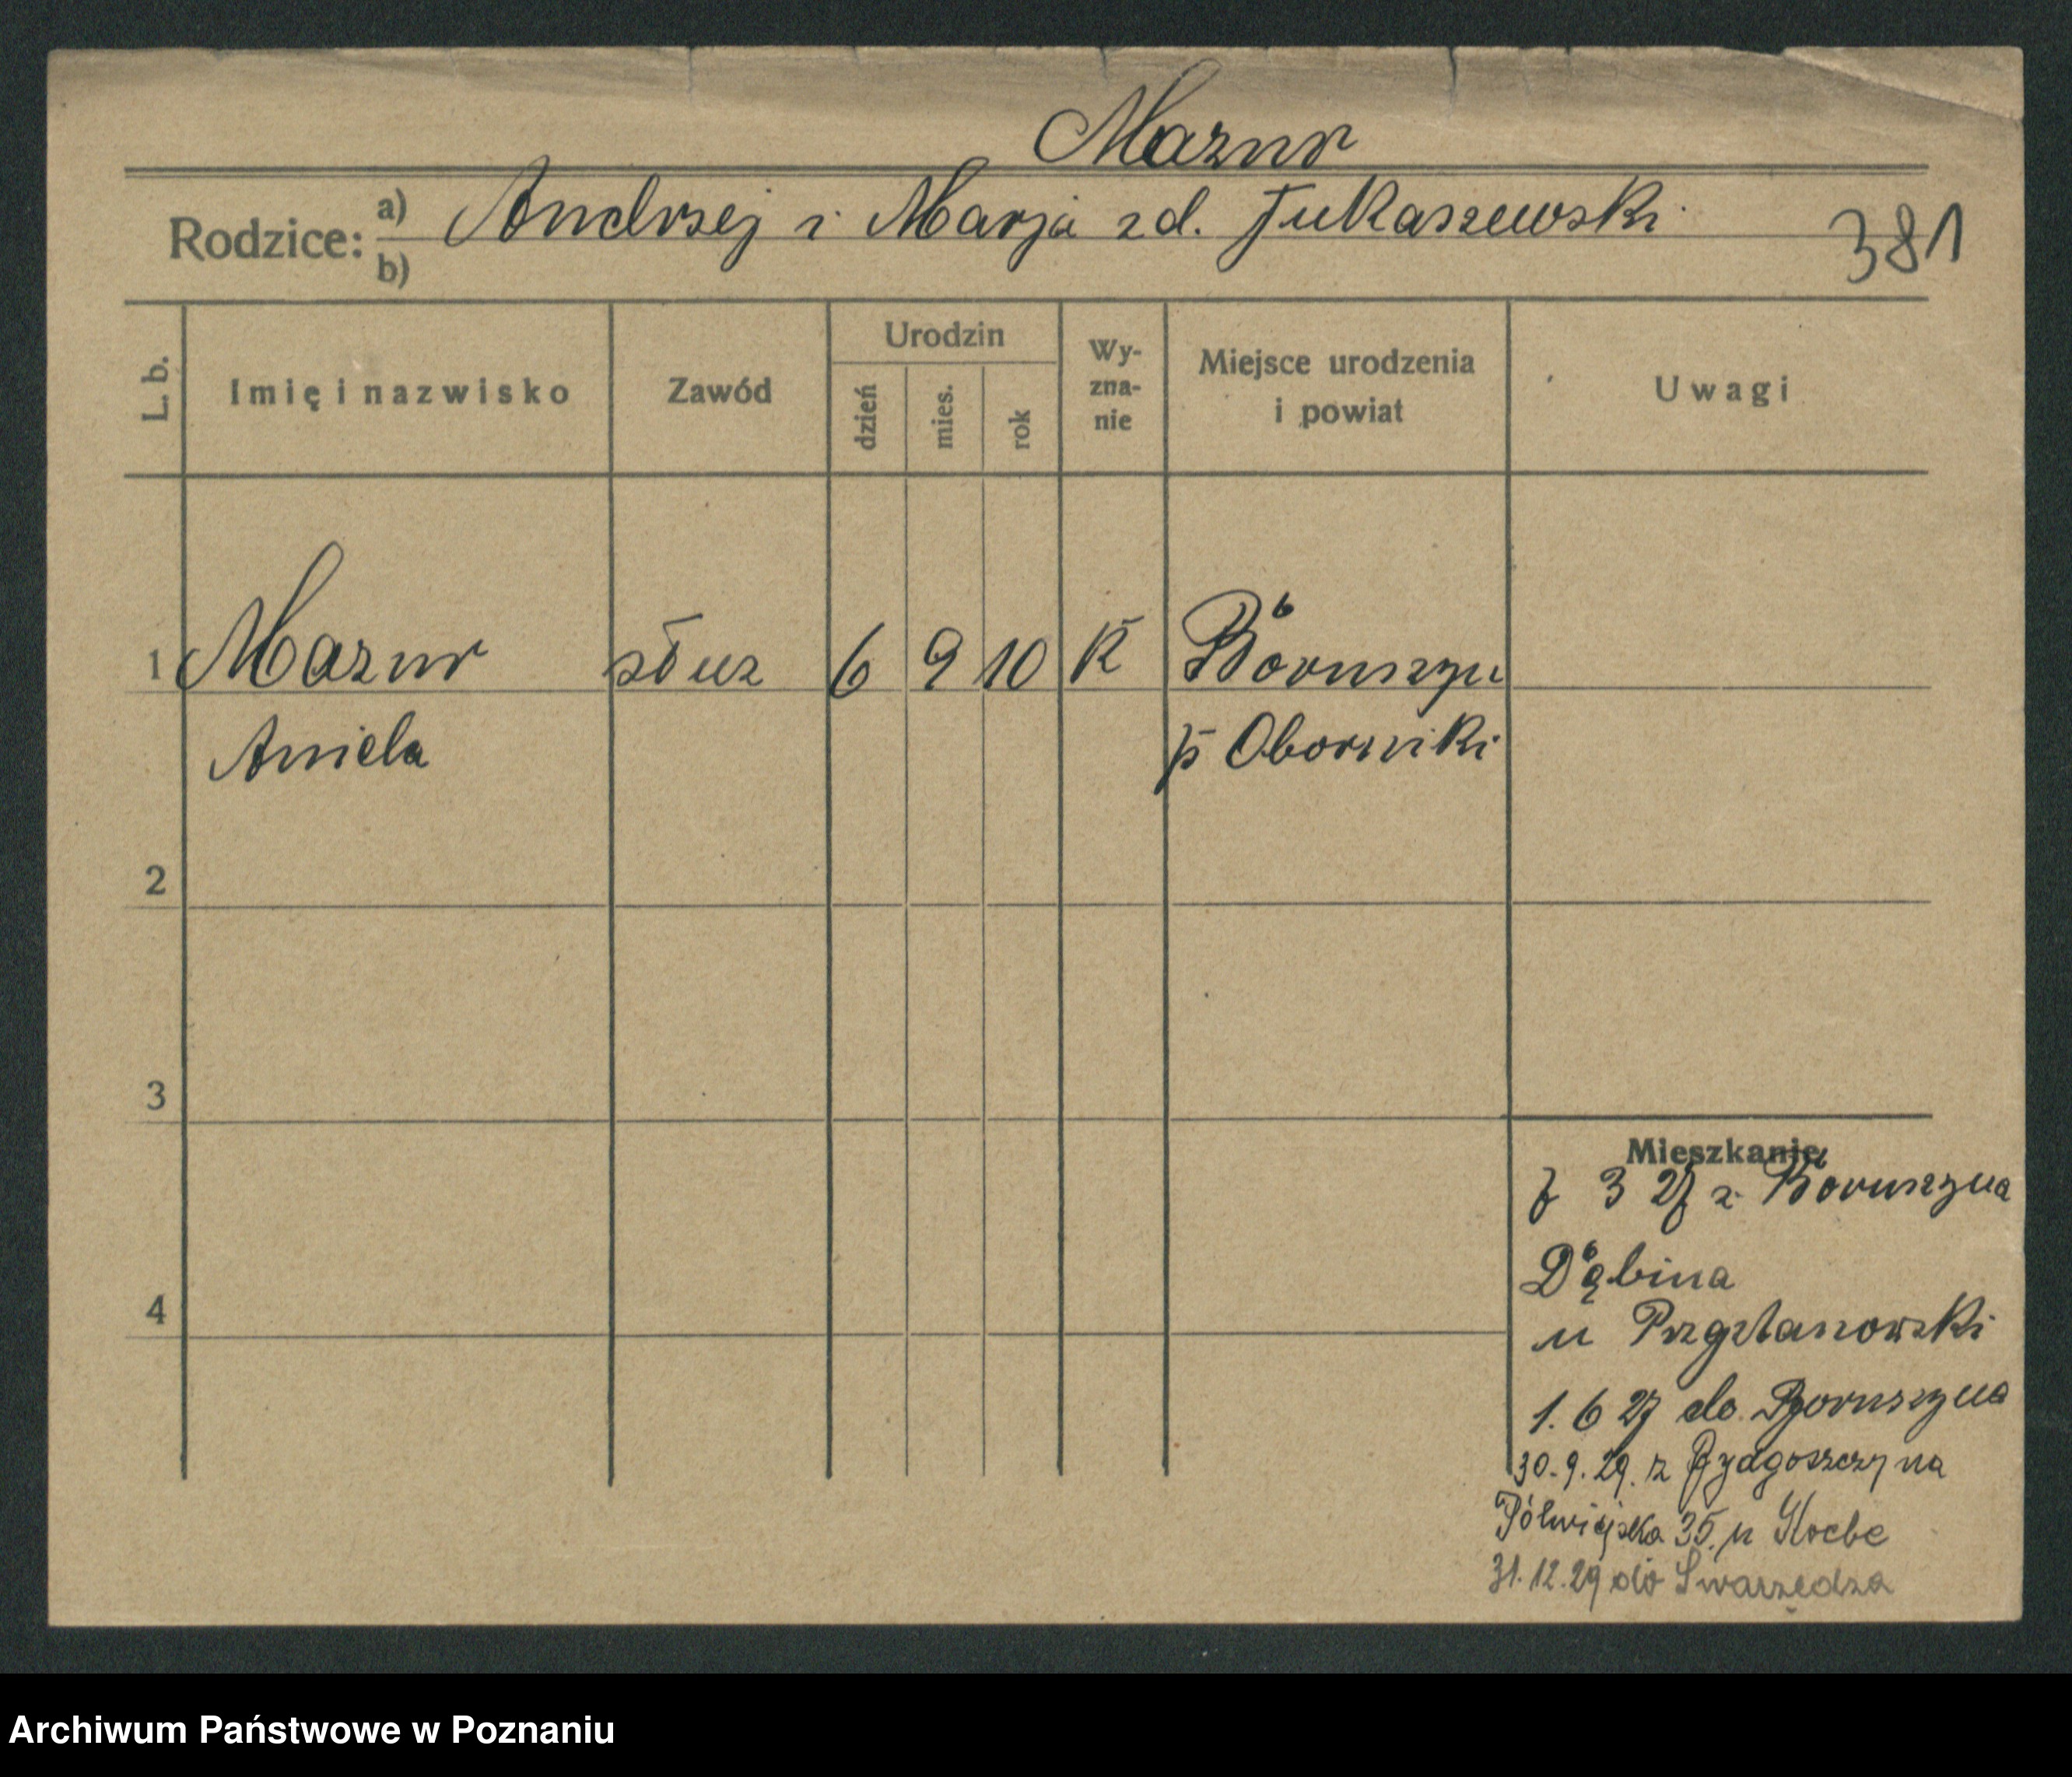 Mazur
Rodzice: a) Andrzej i Marja zd. Łukaszewski
b)
381
L. b. Imię i nazwisko Zawód Urodzin dzień mies. rok Wy-zna-nie Miejsce urodzenia i powiat Uwagi
1 Mazur słuz 6 9 10 K Boruszyn
Aniela p Oborniki
2
3
4
Mieszkanie
7 3 27 z Boruszyna
Dąbina
u
1. 6 27 do Boruszyna
30.9.29. z Bydgoszczy na
Półwiejska 35. u
31.12.29 do Swarzędza
Archiwum Państwowe w Poznaniu